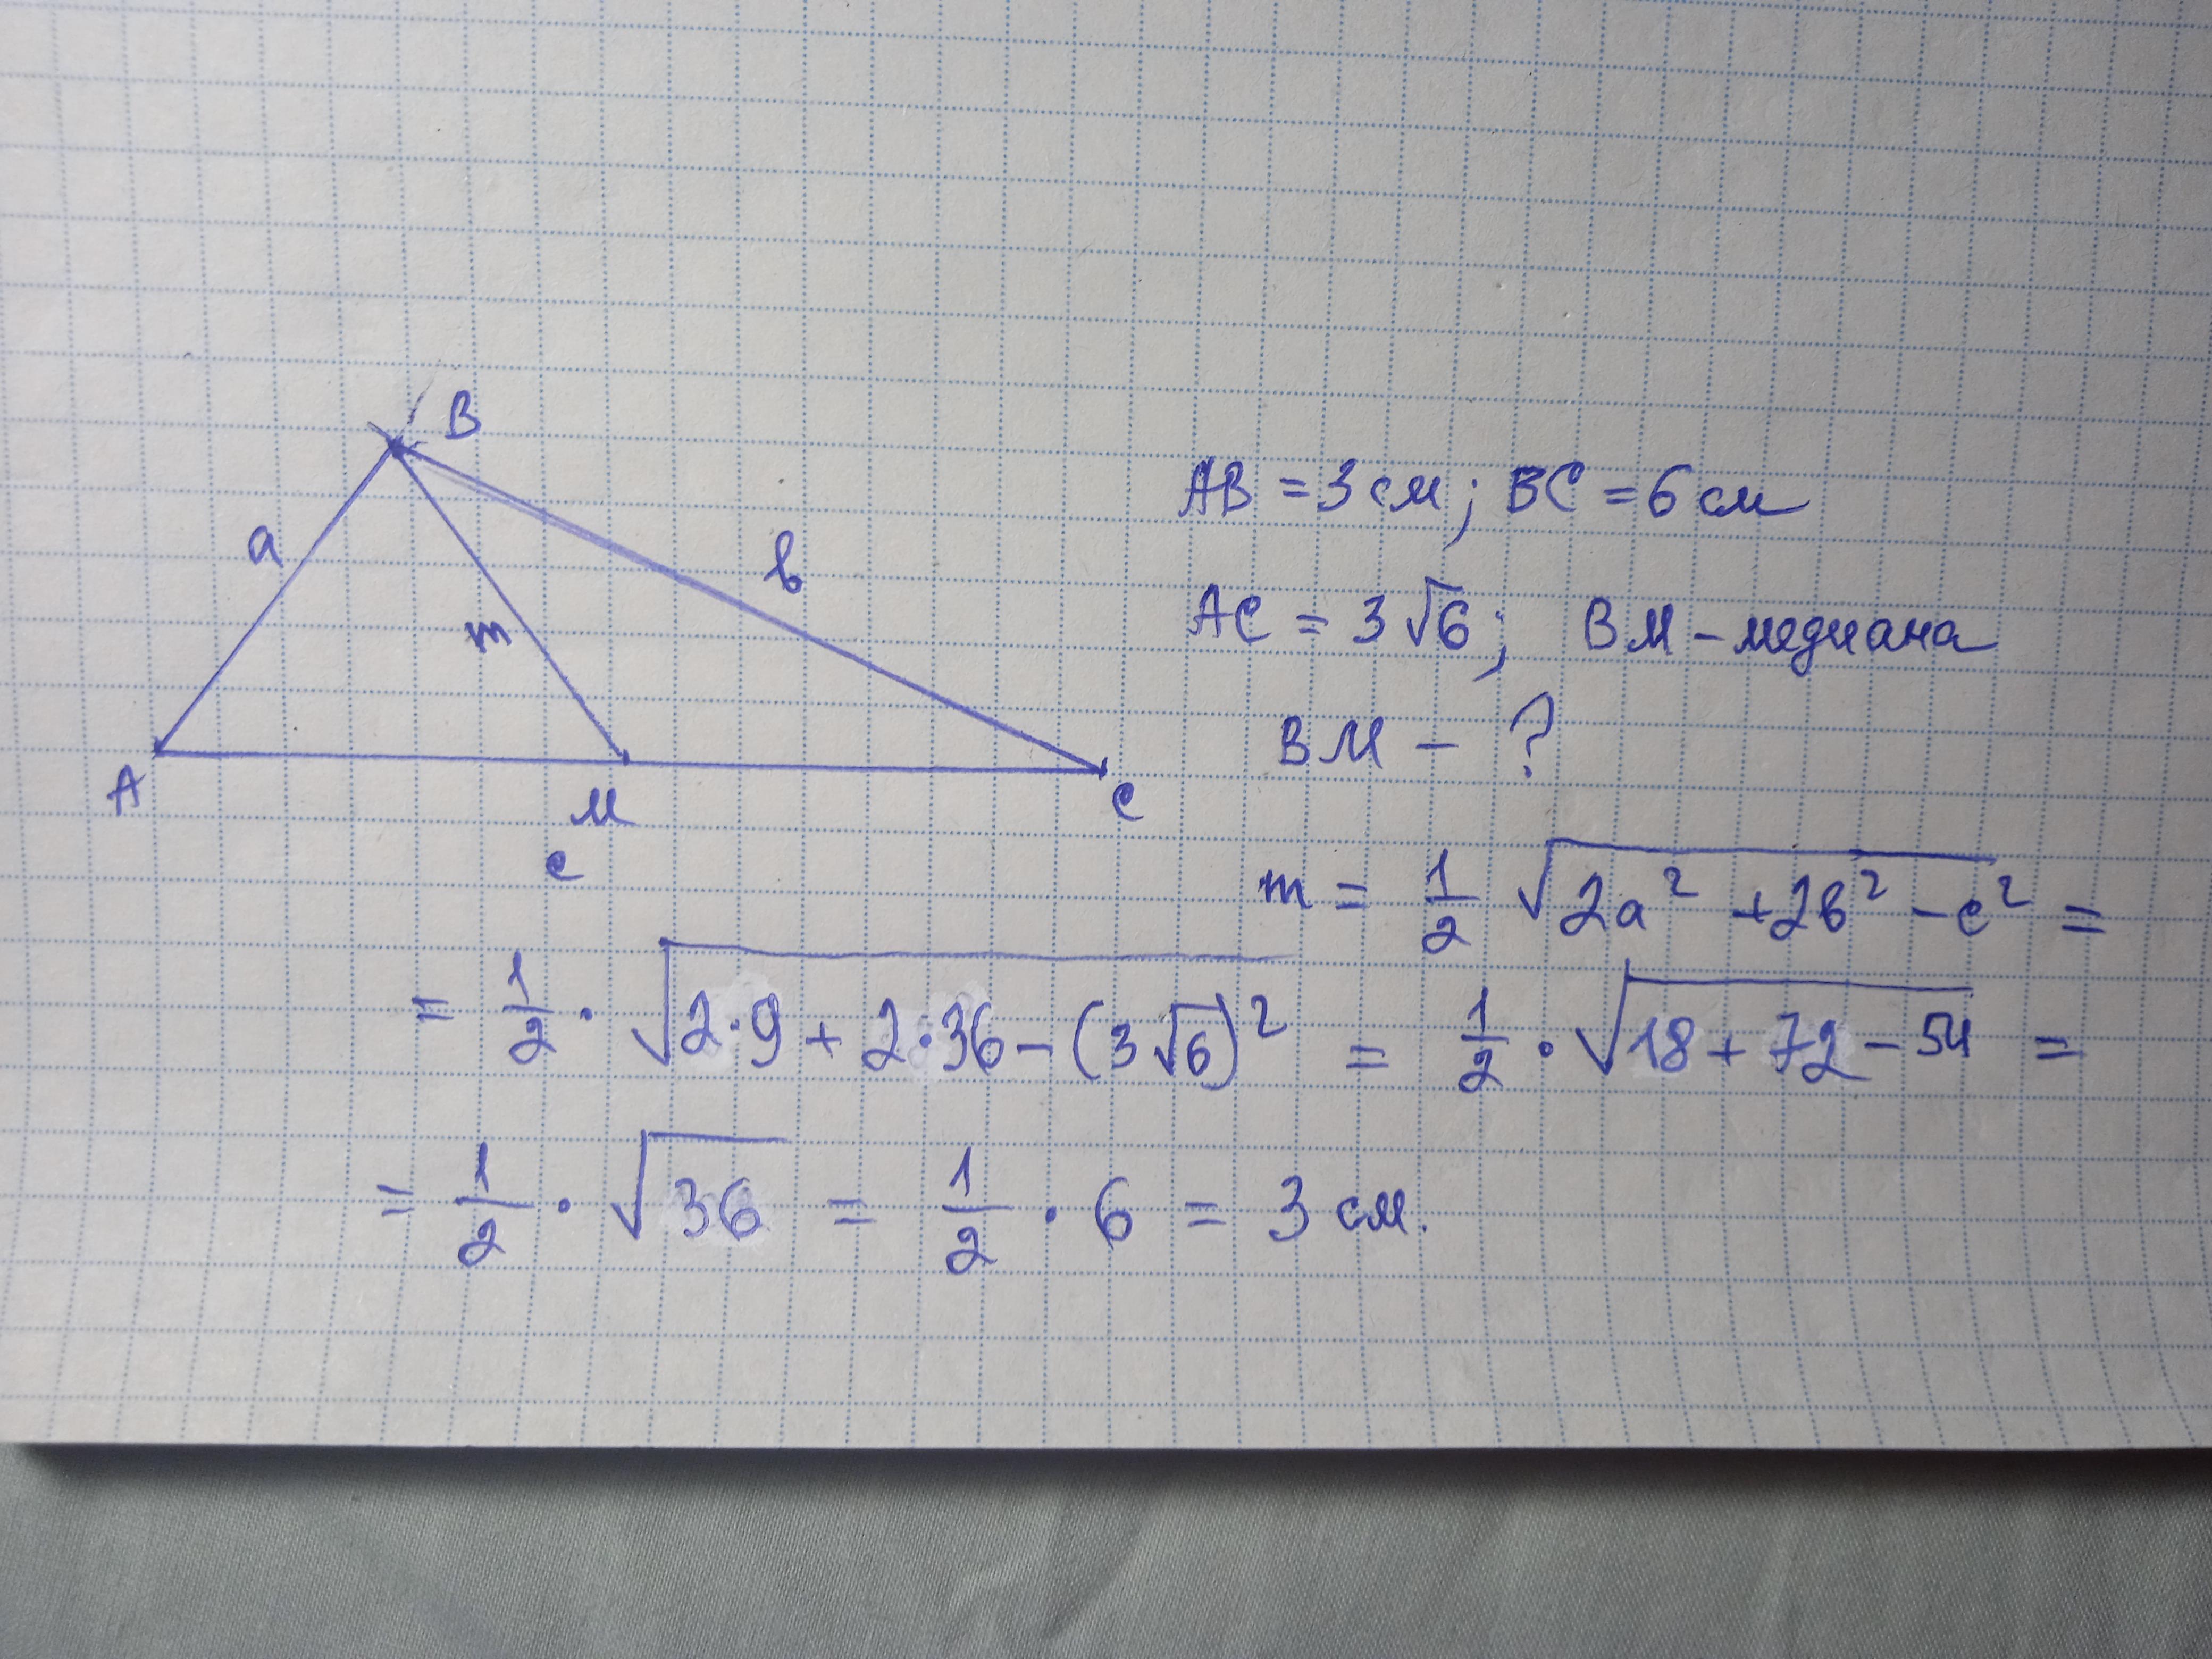 B
a
в
m
A
M
C
c
AB = 3 см; BC = 6 см
AC = 3√6; BM – медиана
BM – ?
m = 1/2 √(2a² + 2в² – c²) =
= 1/2 · √(2·9 + 2·36 – (3√6)²) = 1/2 · √(18 + 72 – 54) =
= 1/2 · √36 = 1/2 · 6 = 3 см.